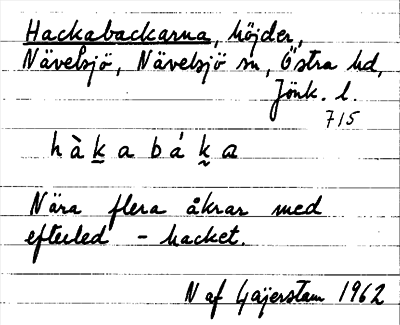 Hackabackarna, höjder,
Nävelsjö, Nävelsjö sn, Östra hd,
Jönk. l.
715
h à k a b á k a
Nära flera åkrar med
efterled - hacket.
N af Gajerstam 1962